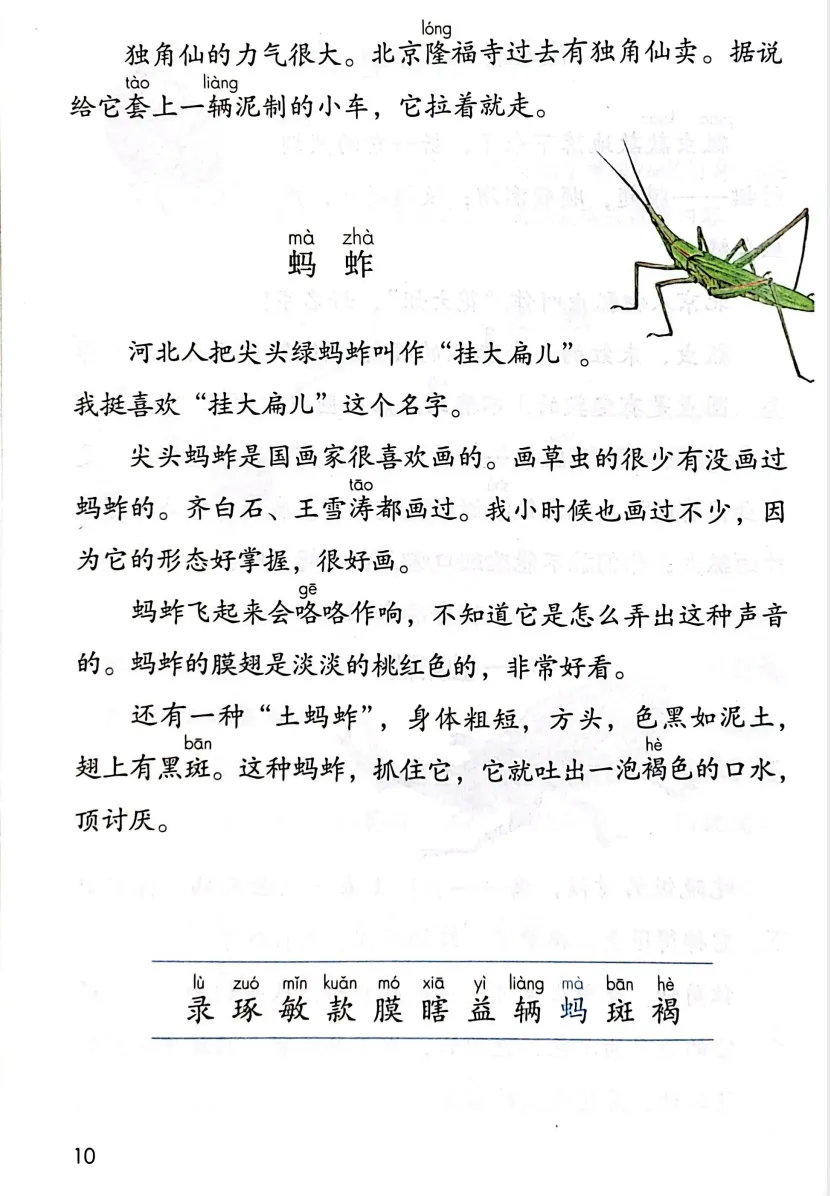 lóng
独角仙的力气很大。北京隆福寺过去有独角仙卖。据说
tào liàng
给它套上一辆泥制的小车，它拉着就走。
mà zhà
蚂 蚱
河北人把尖头绿蚂蚱叫作“挂大扁儿”。
我挺喜欢“挂大扁儿”这个名字。
尖头蚂蚱是国画家很喜欢画的。画草虫的很少有没画过
tāo
蚂蚱的。齐白石、王雪涛都画过。我小时候也画过不少，因
为它的形态好掌握，很好画。
gē
蚂蚱飞起来会咯咯作响，不知道它是怎么弄出这种声音
的。蚂蚱的膜翅是淡淡的桃红色的，非常好看。
还有一种“土蚂蚱”，身体粗短，方头，色黑如泥土，
bān hè
翅上有黑斑。这种蚂蚱，抓住它，它就吐出一泡褐色的口水，
顶讨厌。
lù zuó mǐn kuǎn mó xiā yì liàng mà bān hè
录 琢 敏 款 膜 瞎 益 辆 蚂 斑 褐
10